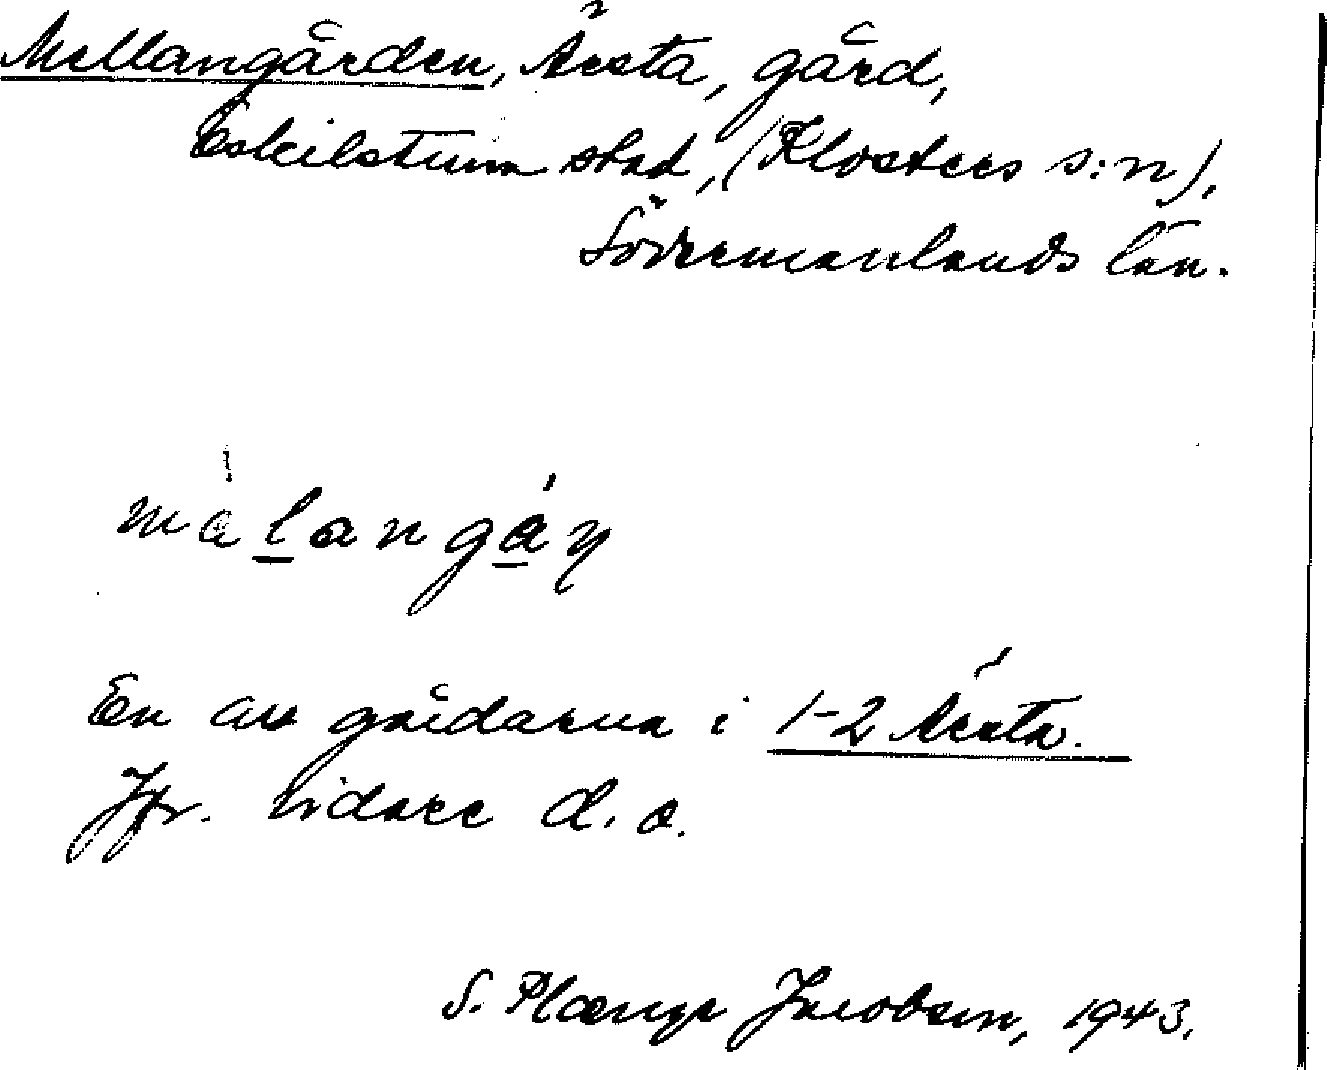 Mellangården, Ärsta, gård,
Eskilstuna stad, (Klosters s:n),
Södermanlands län.
mälangän
En av gårdarna i 1-2 Ärsta.
Jfr. vidare d. o.
S. Plænge Jacobson, 1943.